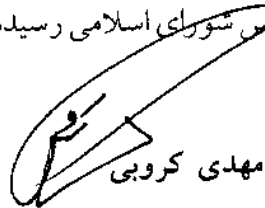 شورای اسلامی رسیده
مهدی کروبی